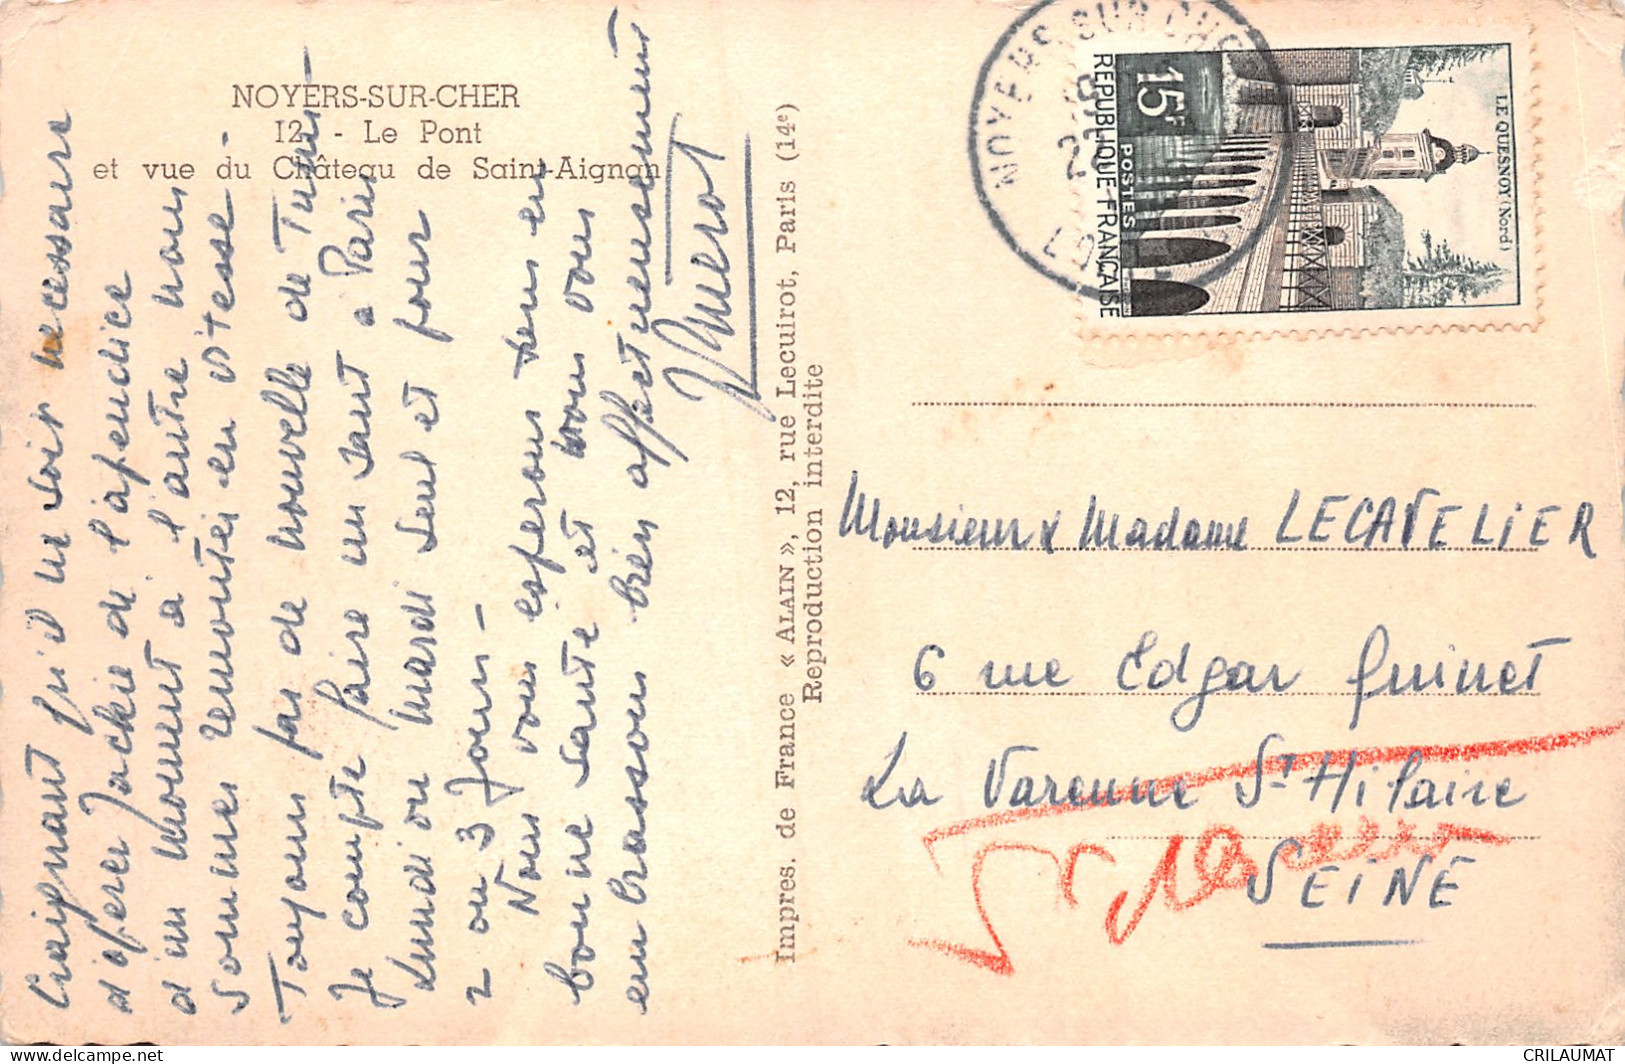 NOYERS-SUR-CHER
12. - Le Pont
et vue du Château de Saint-Aignan
Craignant qu'il ne soit necessaire
d'oferer Jackie de l'apendice
d'un moment à l'autre nous
sommes remontés en vitesse -
Toujours pas de nouvelle de Tunis -
Je compte faire un saut a Paris
Lundi ou mardi seul et pour
2 ou 3 jours -
Nous vous esperons tous en
bonne santé et nous vous
embrassons bien affectueusement
Impres. de France « ALAIN », 12, rue Lecuirot, Paris (14e)
Reproduction interdite
NOYERS-SUR-CHER
REPUBLIQUE FRANÇAISE
15F
POSTES
LE QUESNOY (Nord)
Monsieur & Madame LECAVELIER
6 rue Edgar Quinet
La Varenne St Hilaire
SEINE
CRILAUMAT